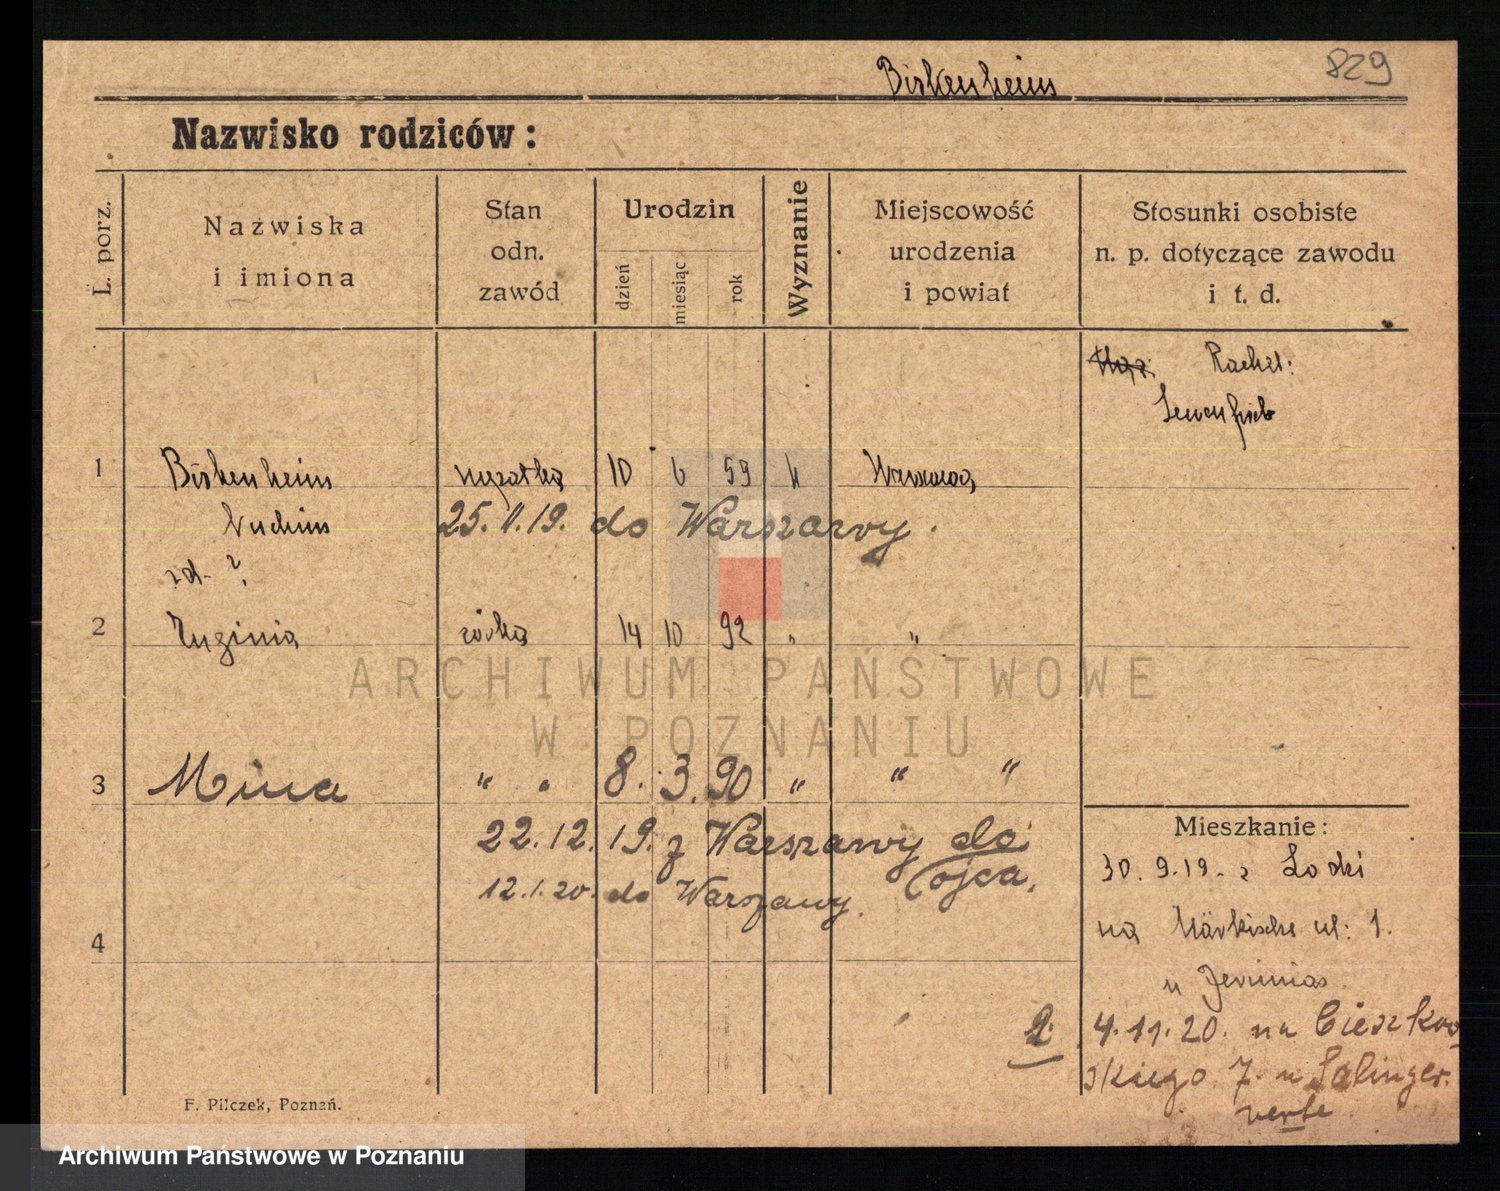 829
Birkenheim
Nazwisko rodziców:
L. porz.
Nazwiska
i imiona
Stan
odn.
zawód
Urodzin
dzień
miesiąc
rok
Wyznanie
Miejscowość
urodzenia
i powiat
Stosunki osobiste
n. p. dotyczące zawodu
i t. d.
Rachel:
1
Birkenheim
10 6 59
25. 11. 19. do Warszawy.
zd- ?
2
córka 14 10 92 " "
ARCHIWUM PAŃSTWOWE
W POZNANIU
3
Mina " " 8. 3. 90 " " "
22. 12. 19. z Warszawy do
ojca.
12. 1. 20. do Warszawy.
4
Mieszkanie:
30. 9. 19. z Lodzi
na Märkische ul: 1.
u Jeremias
2. 4. 11. 20. na Cieszkow-
skiego 7. u Salinger.
verte
F. Pilczek, Poznań.
Archiwum Państwowe w Poznaniu